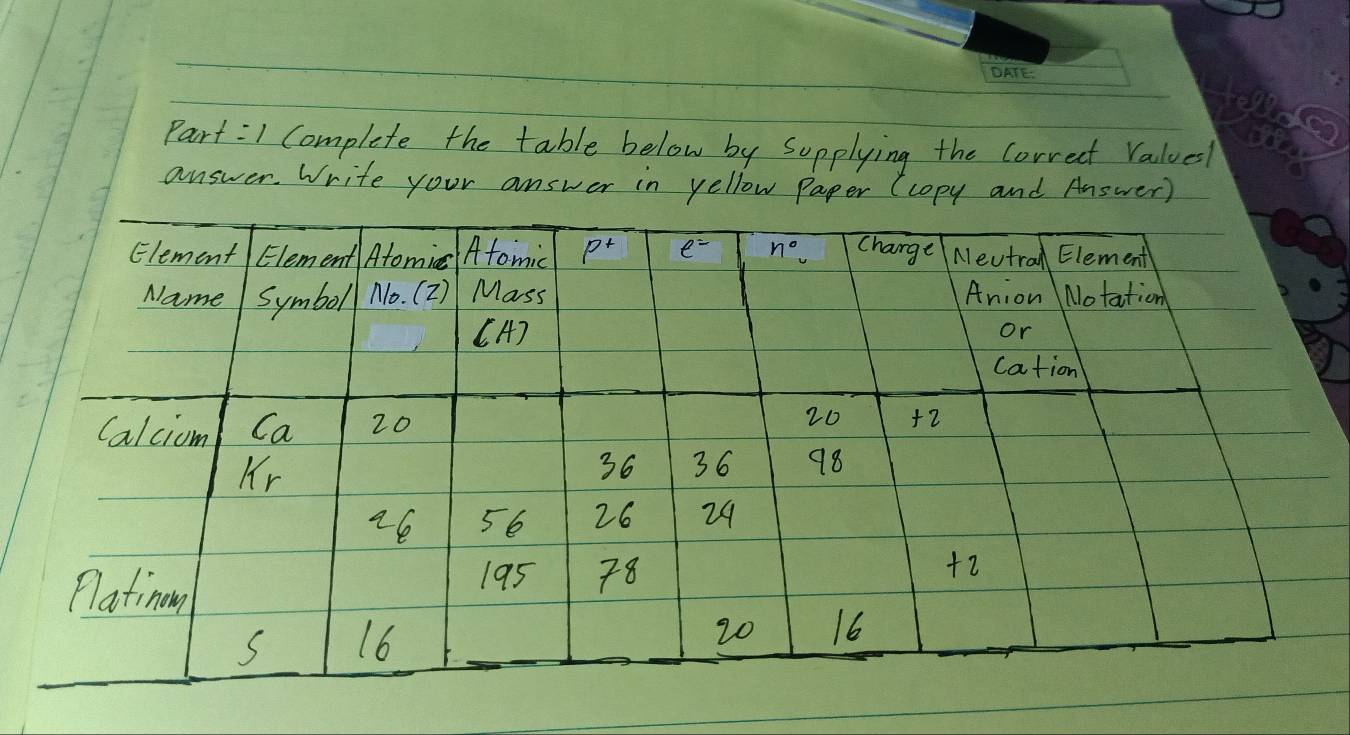 DATE:
Part:1 Complete the table below by supplying the correct Values/
answer. Write your answer in yellow Paper (copy and Answer)
Element Name | Element Symbol | Atomic No. (Z) | Atomic Mass (A) | p+ | e- | n° | Charge | Neutral Anion or Cation | Element Notation
Calcium | Ca | 20 | | | | 20 | +2 | |
| Kr | | | 36 | 36 | 98 | | |
| | 26 | 56 | 26 | 24 | | | |
Platinum | | | 195 | 78 | | | +2 | |
| S | 16 | | | 20 | 16 | | |
Hello